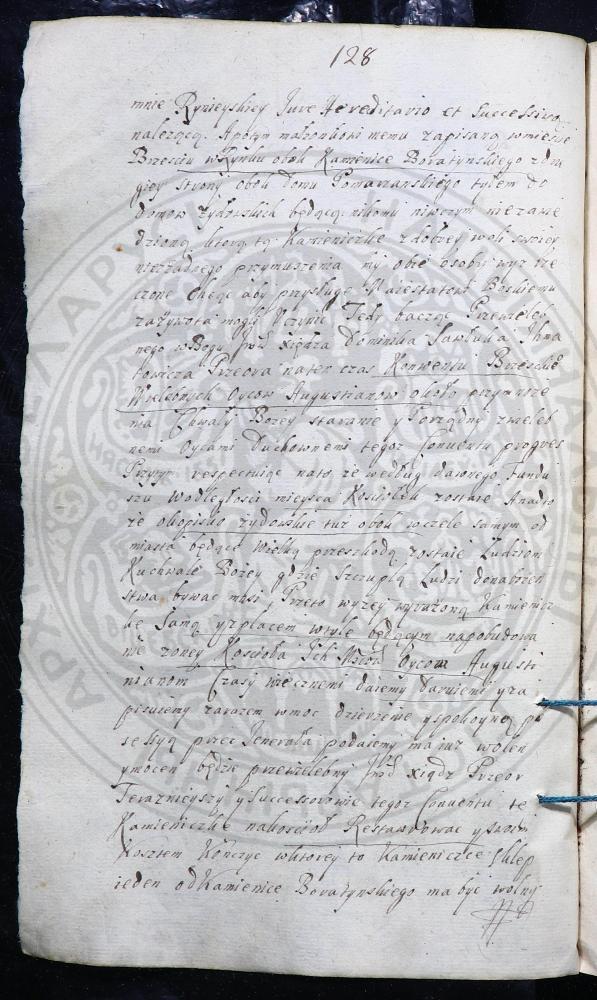 128
mnie Rynieyskiey Jure Hereditario et Successivo
nalezącą. Apotym małzonkowi memu zapisaną wmieście
Brzesciu wRynku obok Kamienice Boratynskiego zdru
giey strony obok domu Pomarzanskiego tyłem do
domow zydowskich będącą, nikomu niwczym niezawie
dzioną ktorą tę Kamieniczke zdobrey woli swoiey
niezżadnego przymuszenia my obie osoby wyz rze
czone chcąc aby przysługę Maiestatowi Boskiemu
zazywota mogli Uczynic Tedy bacząc Przewieleb
nego wBogu Jmę xiędza Dominika Sawluka Ihna
towicza Przeora naten czas Konwentu Brzeskie
Wielebnych Oycow Augustianow około przymnoże
nia Chwały Bozey staranie y Porządny zwieleb
nemi Oycami Duchownemi tegoz Conventu progres
Przytym respectuiąc nato, ze według dawnego Fundu
szu Wodległosci mieysca Kosciołek zostaie Anadto
że okopisko zydowskie tuz obok wczele samym od
miasta będące wielką przeszkodą zostaie Ludziom
Kuchwale Bozey gdzie szczupłą Ludzi donabożen
stwa bywac musi, Przeto wyzey wyrażoną Kamienicz
kę samą yzplacem wtyle będącym napobudowa
nie Koscioła Ich Mciow Oycom Augusti
nianom Czasy wiecznemi daiemy daruiemy yza
pisuiemy zarazem wmoc dzierzenie yspokoyną po
sessyą przez Jenerała podaiemy maiuz wolen
ymocen będzie przewielebny Jmć xiądz Przeor
Teraznieyszy ySuccessorowie tegoz Conventu tę
Kamieniczkę nakosciół Restawrowac yswoim
Kosztem Konczyc wktorey to Kamieniczce Sklep
ieden odKamienice Boratynskiego ma byc wolny